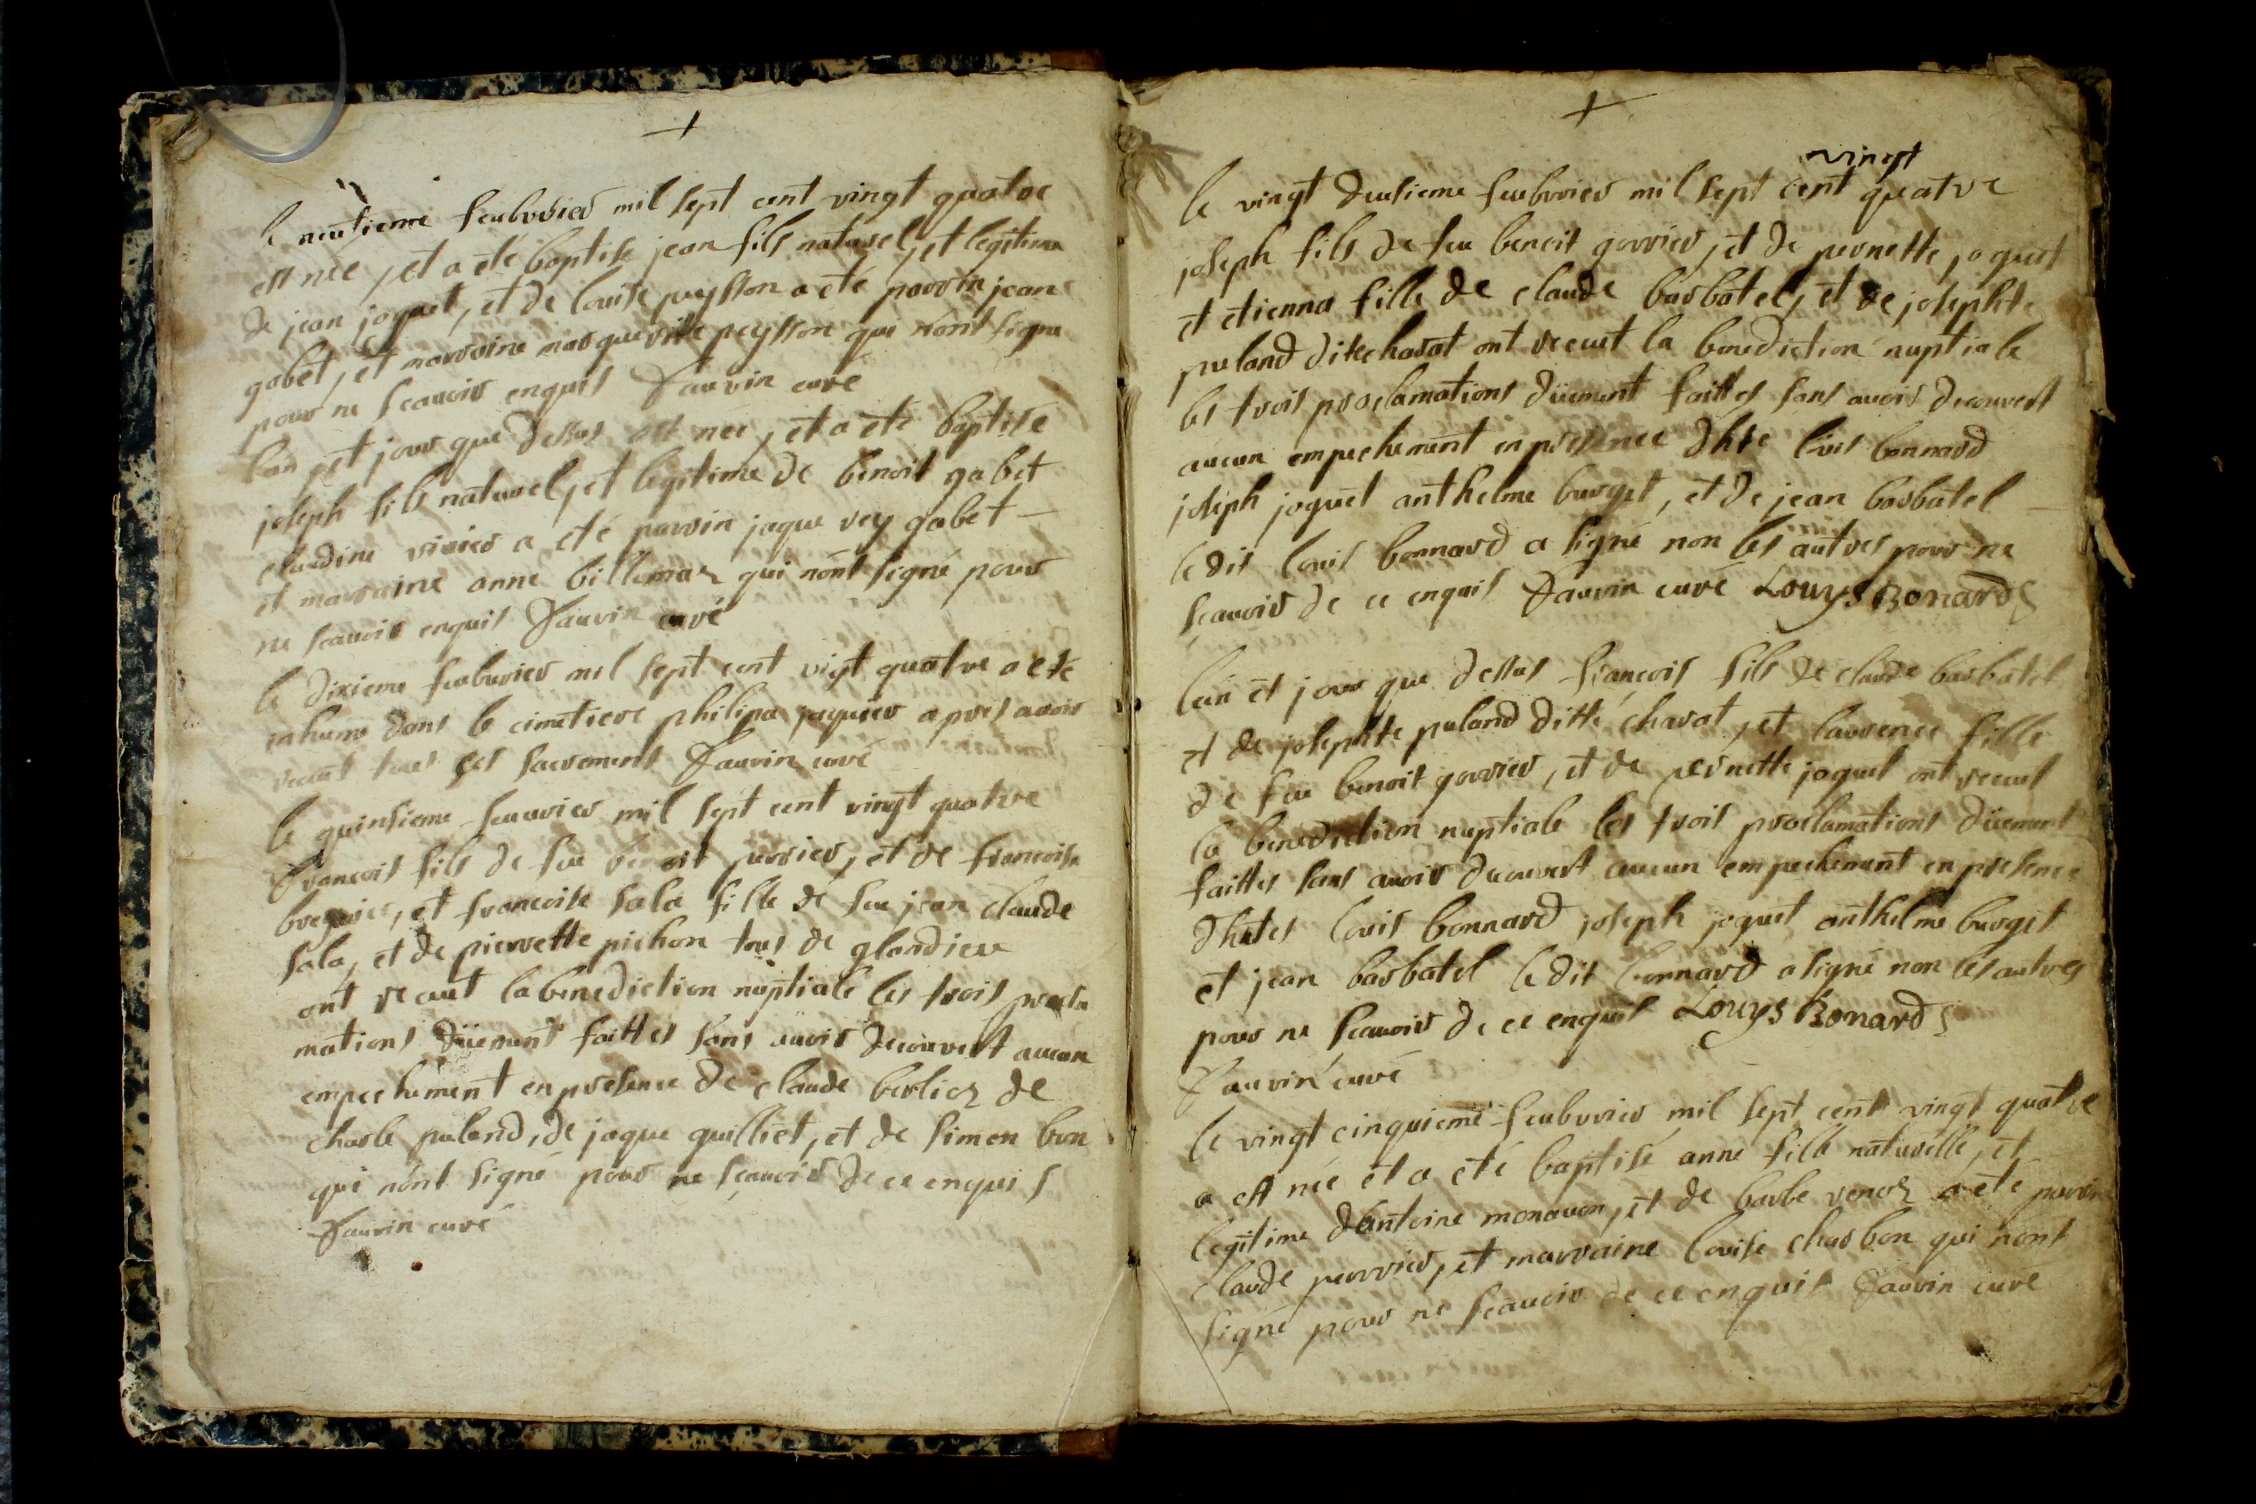 +
le neufieme feubvrier mil sept cent vingt quatre
est née, et a été baptise jean fils naturel, et legitime
de jean joquet, et de louise peysson a été parrin jean
gabet, et marraine marguerite peysson qui n'ont signe
pour ne scauoir enquis Fauvin curé
lan et jour que dessus est née, et a été baptisé
joseph fils naturel, et legitime de benoit gabet
claudine virier a été parrin jaque rey gabet
et marraine anne billemaz qui n'ont signé pour
ne scauoir enquis Fauvin curé
le dixieme feubvrier mil sept cent vigt quatre a été
inhume dans le cimetiere philipa joquier apres auoir
receut tous ses sacrements Fauvin curé
le quinsieme feuvrier mil sept cent vingt quatre
francois fils de feu benoit perrier, et de francoise
et francoise sala fille de feu jean claude
sala, et de pierrette pichon tous de glandieu
ont receut la benediction nuptiale les trois procla
mations düement faittes sans auoir decouvert aucun
empechement en presence de claude berlioz de
charle puland, de jaque guilliet, et de simon bon
qui n'ont signé pour ne scauoir de ce enquis
Fauvin curé
+
vingt
le vingt deusieme feubvrier mil sept cent quatre
joseph fils de feu benoit gorrier, et de pernette joquet
et etienna fille de claude barbatel, et de josephte
puland dite charat ont receut la benediction nuptiale
les trois proclamations düement faittes sans auoir decouvert
aucun empechement en presence d'hte lois bonnard
joseph joquet anthelme burget, et de jean barbatel
le dit louis bonnard a signé non les autres pour ne
scauoir de ce enquis Fauvin curé Louys Bonard
lan et jour que dessus françois fils de claude barbatel
et de josephte puland ditte charat, et laurence fille
de feu benoit gorrier, et de pernette joquet ont receut
la benediction nuptiale les trois proclamations düement
faittes sans auoir decouvert aucun empechement en presence
d'htes louis bonnard joseph joquet anthelme burget
et jean barbatel le dit bonnard a signé non les autres
pour ne scauoir de ce enquis Louys Bonard
Fauvin curé
le vingt cinquieme feubvrier mil sept cent vingt quatre
a est née et a été baptisé anne fille naturelle, et
legitime d'antoine monavon, et de barbe venoz a été parrin
claude perrier, et marraine louise charbon qui n'ont
signé pour ne scauoir de ce enquis Fauvin curé